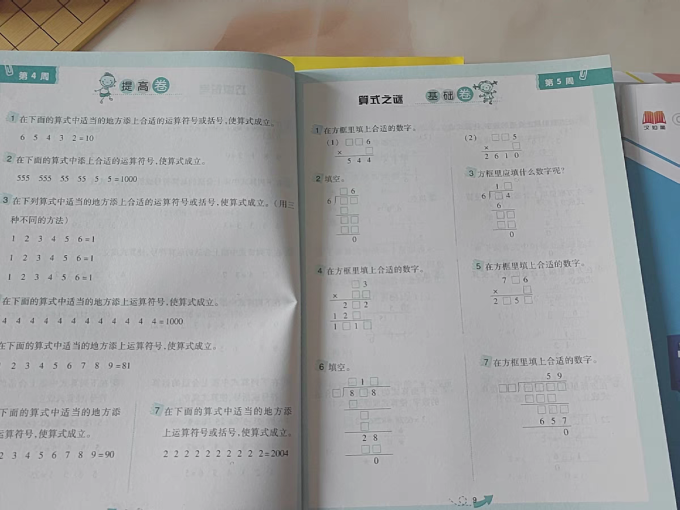 第4周
提高卷
1 在下面的算式中适当的地方添上合适的运算符号或括号,使算式成立。
6 5 4 3 2=10
2 在下面的算式中添上合适的运算符号,使算式成立。
555 555 55 55 5 5=1000
3 在下列算式中适当的地方添上合适的运算符号或括号,使算式成立。(用三
种不同的方法)
1 2 3 4 5 6=1
1 2 3 4 5 6=1
1 2 3 4 5 6=1
在下面的算式中适当的地方添上运算符号,使算式成立。
4 4 4 4 4 4 4 4 4 4 4 4=1000
在下面的算式中适当的地方添上运算符号,使算式成立。
2 3 4 5 6 7 8 9=81
在下面的算式中适当的地方添
上运算符号,使算式成立。
2 3 4 5 6 7 8 9=90
7 在下面的算式中适当的地方添
上运算符号或括号,使算式成立。
2 2 2 2 2 2 2 2 2 2=2004
第5周
算式之谜 基础卷
1 在方框里填上合适的数字。
(1) □□6
× □
5 4 4
(2) □□5
× □
2 6 1 0
2 填空。
□6
6□□
□
□□
□□
0
3 方框里应填什么数字呢?
1□
6□4
□
□□
□□
0
4 在方框里填上合适的数字。
□3
× □□
2□2
1 2□
1□1□
5 在方框里填上合适的数字。
7□6
× □
2□5□
6 填空。
□1□
□8□8
□
□
□
2 8
□□
0
7 在方框里填上合适的数字。
5 9
□□□□□□
□□□
□□□
6 5 7
0
9
汉知简